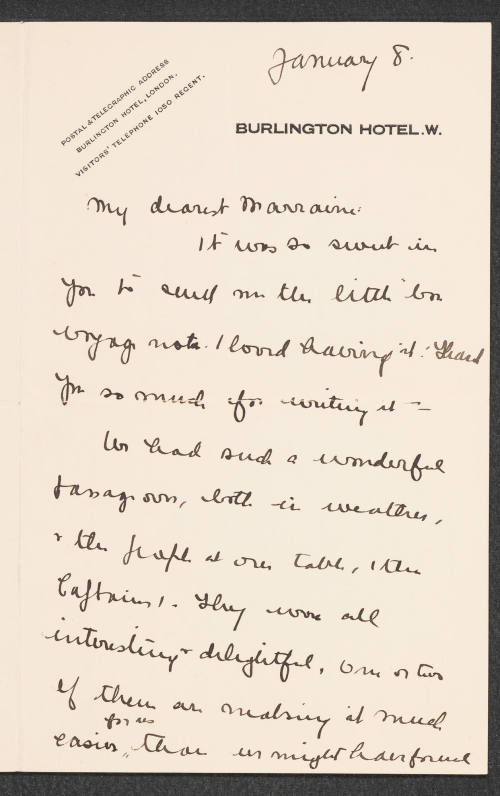 January 8.
POSTAL & TELEGRAPHIC ADDRESS
BURLINGTON HOTEL, LONDON.
VISITORS' TELEPHONE 1050 REGENT.
BURLINGTON HOTEL. W.
My dearest Marraine:
It was so sweet in
you to send me the little bon
voyage note. I loved having it. Thank
you so much for writing it —
We had such a wonderful
passage over, both in weather,
& the people at our table, (the
Captains). They were all
interesting & delightful, one or two
of them are making it much
for us
easier, than we might have found